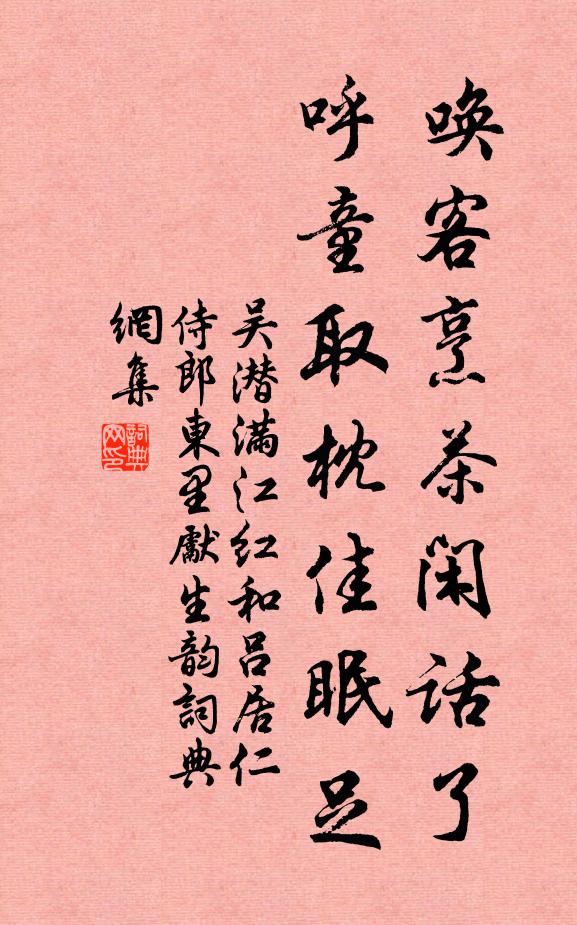 唤客烹茶闲话了
呼童取枕佳眠足
吴潜满江红和吕居仁
侍郎東里獻生韵詞典
網集
詞典
网印